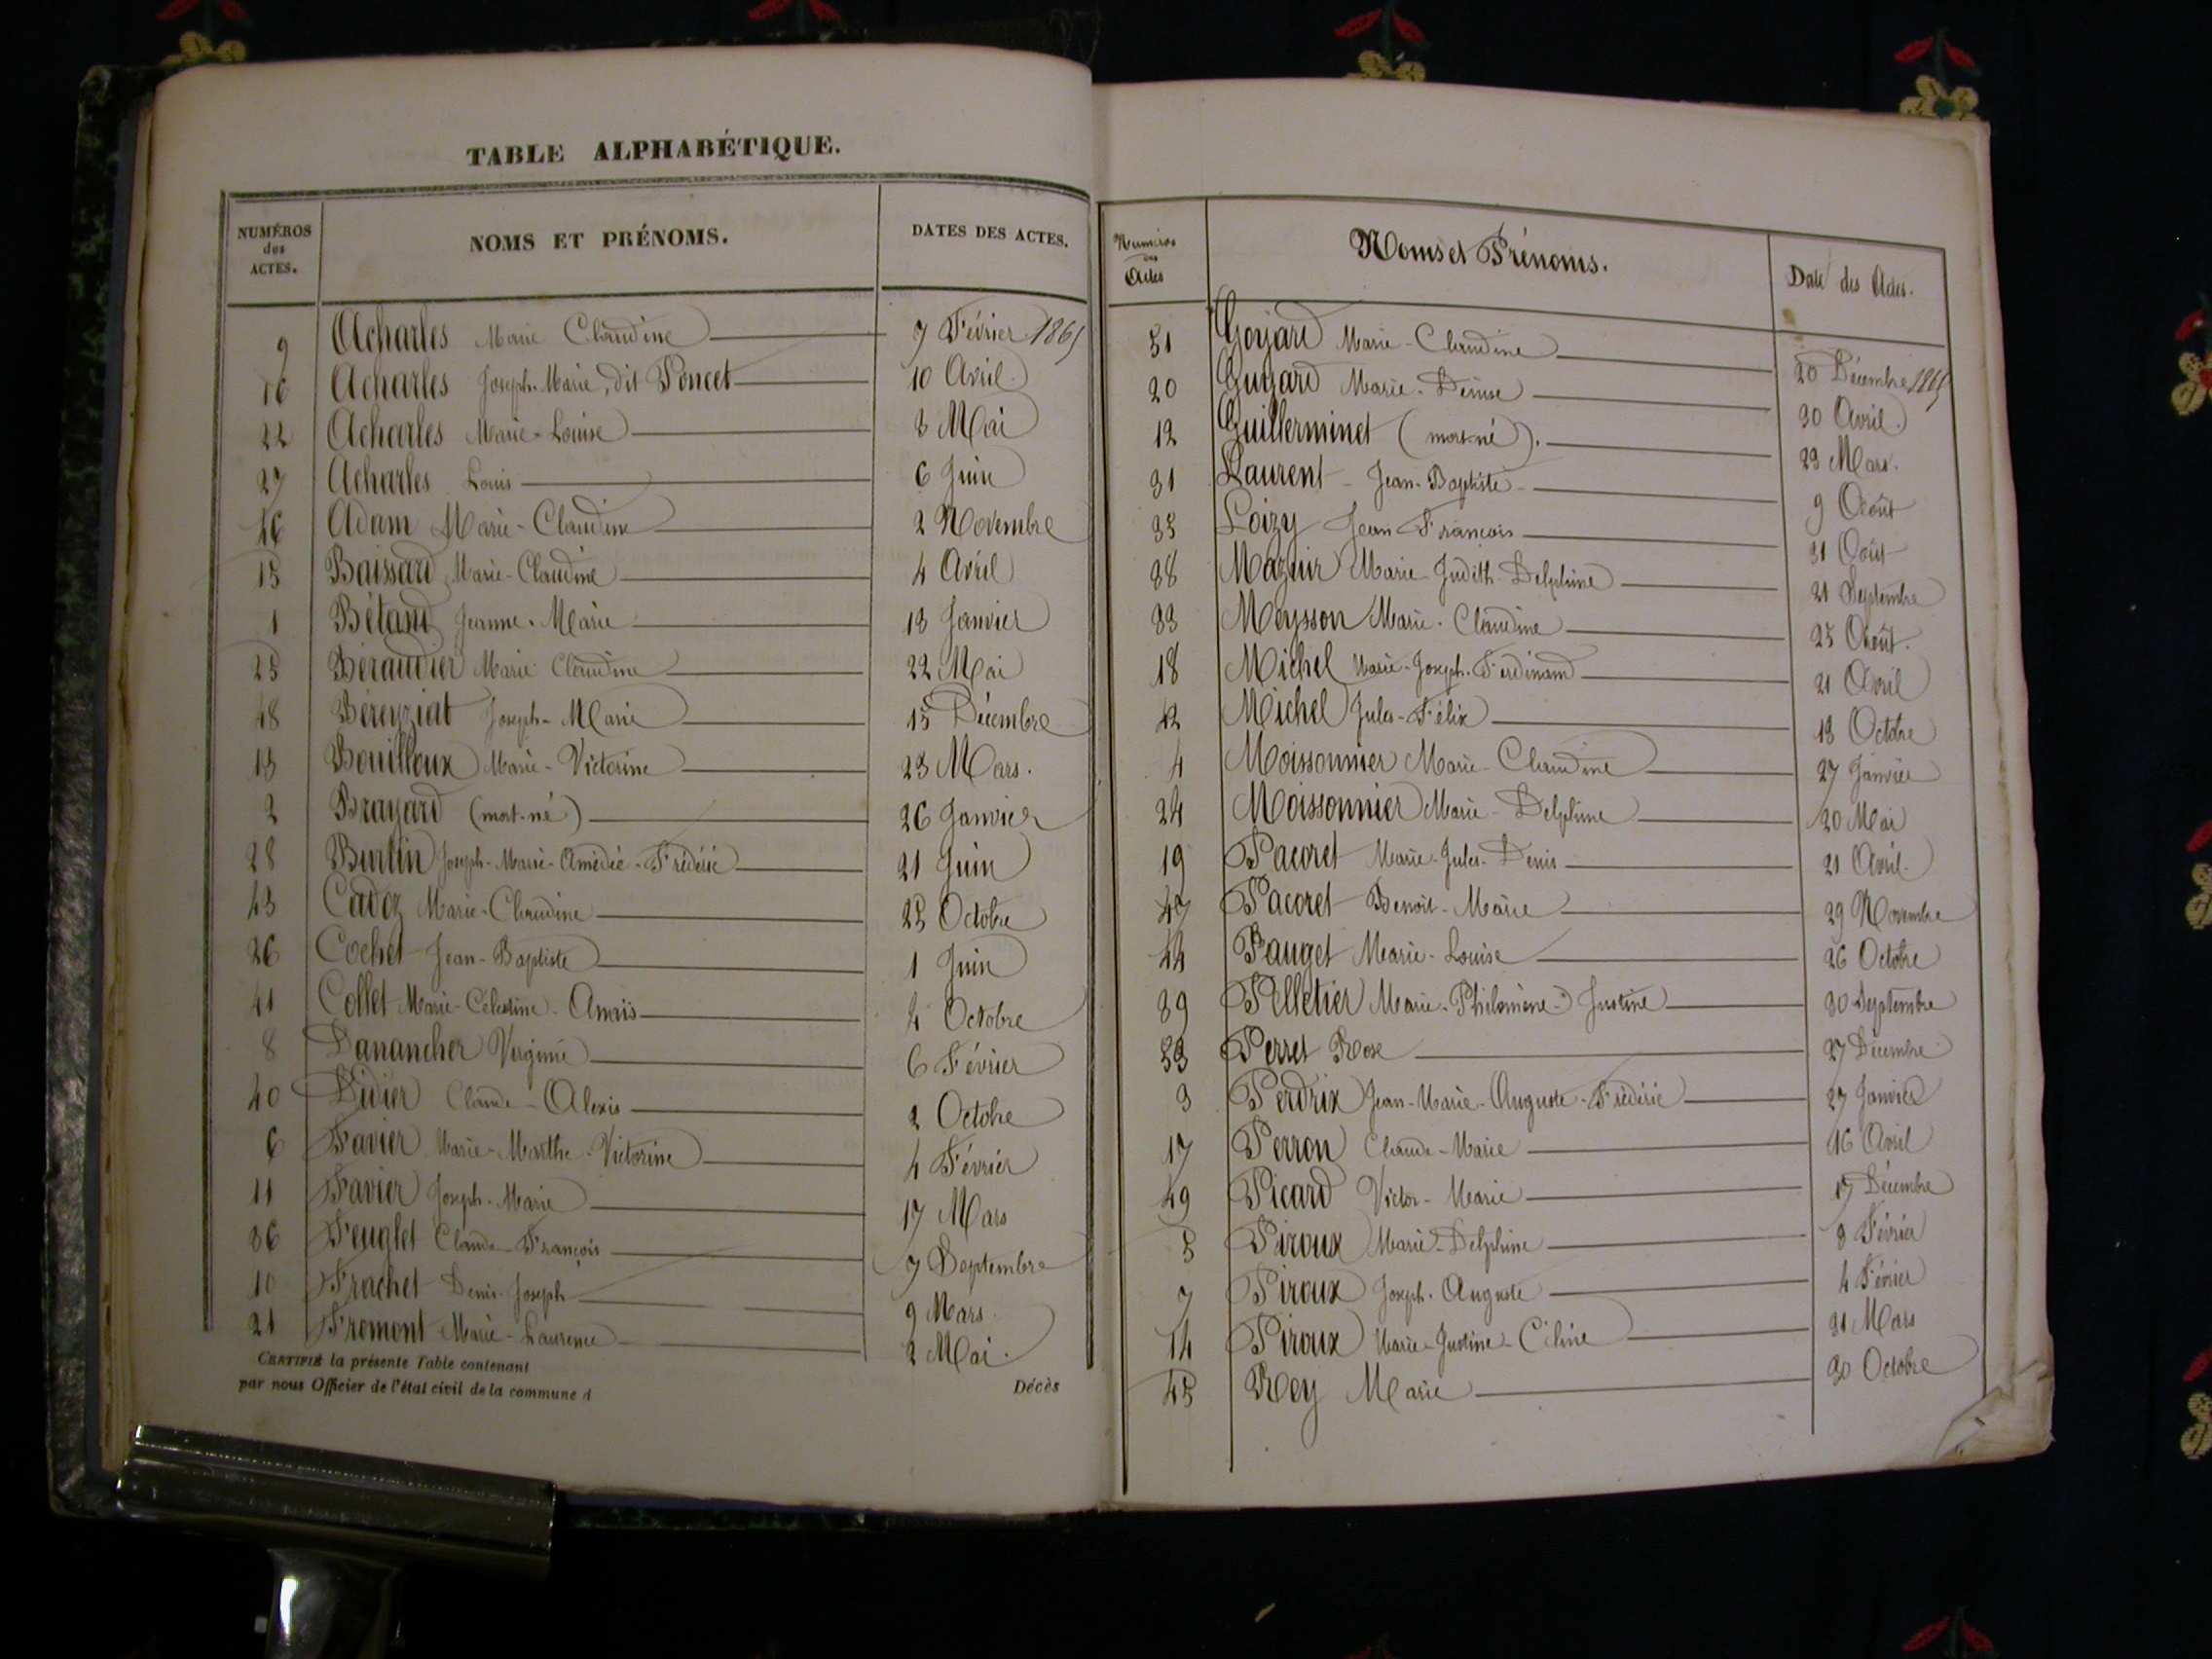 TABLE ALPHABÉTIQUE.
NUMÉROS des ACTES. NOMS ET PRÉNOMS. DATES DES ACTES.
9 Acharles Marie Claudine 7 Février 1865
16 Acharles Joseph-Marie, dit Poncet 10 Avril
22 Acharles Marie-Louise 3 Mai
27 Acharles Louis 6 Juin
46 Adam Marie-Claudine 2 Novembre
15 Baissard Marie-Claudine 4 Avril
1 Bétand Jeanne-Marie 13 Janvier
25 Béraudier Marie Claudine 22 Mai
48 Béreyziat Joseph-Marie 15 Décembre
13 Bouilloux Marie-Victorine 23 Mars.
2 Brayard (mort-né) 26 Janvier
28 Burtin Joseph-Marie-Amédée-Frédéric 21 Juin
43 Cadoz Marie-Claudine 25 Octobre
26 Cochet Jean-Baptiste 1 Juin
41 Collet Marie-Célestine-Anaïs 4 Octobre
8 Danancher Virginie 6 Février
40 Didier Claude-Alexis 2 Octobre
6 Favier Marie-Marthe-Victorine 4 Février
11 Favier Joseph-Marie 17 Mars
36 Feuglet Claude-François 7 Septembre
10 Frachet Denis-Joseph 9 Mars.
21 Fromont Marie-Laurence 2 Mai.
CERTIFIÉ la présente Table contenant Décès
par nous Officier de l'état civil de la commune d
Numéros des Actes Noms et Prénoms. Date des Actes.
51 Goyard Marie-Claudine 20 Décembre 1865
20 Guyard Marie-Denise 30 Avril
12 Guillerminet (mort-né). 23 Mars.
31 Laurent Jean-Baptiste 9 Août
35 Loizy Jean-François 31 Août
38 Mazuir Marie-Judith-Delphine 21 Septembre
33 Meysson Marie-Claudine 25 Août.
18 Michel Marie-Joseph-Ferdinand 21 Avril
42 Michel Jules-Félix 13 Octobre
4 Moissonnier Marie-Claudine 27 Janvier
24 Moissonnier Marie-Delphine 20 Mai
19 Pacoret Marie-Jules-Denis 21 Avril.
47 Pacoret Benoit-Marie 29 Novembre
44 Pauget Marie-Louise 26 Octobre
39 Pelletier Marie-Philomène-Justine 30 Septembre
53 Perret Rose 27 Décembre
3 Perdrix Jean-Marie-Auguste-Frédéric 27 Janvier
17 Perron Claude-Marie 16 Avril
49 Picard Victor-Marie 17 Décembre
5 Piroux Marie-Delphine 3 Février
7 Piroux Joseph-Auguste 4 Février
14 Piroux Marie-Justine-Céline 31 Mars
45 Rey Marie 30 Octobre